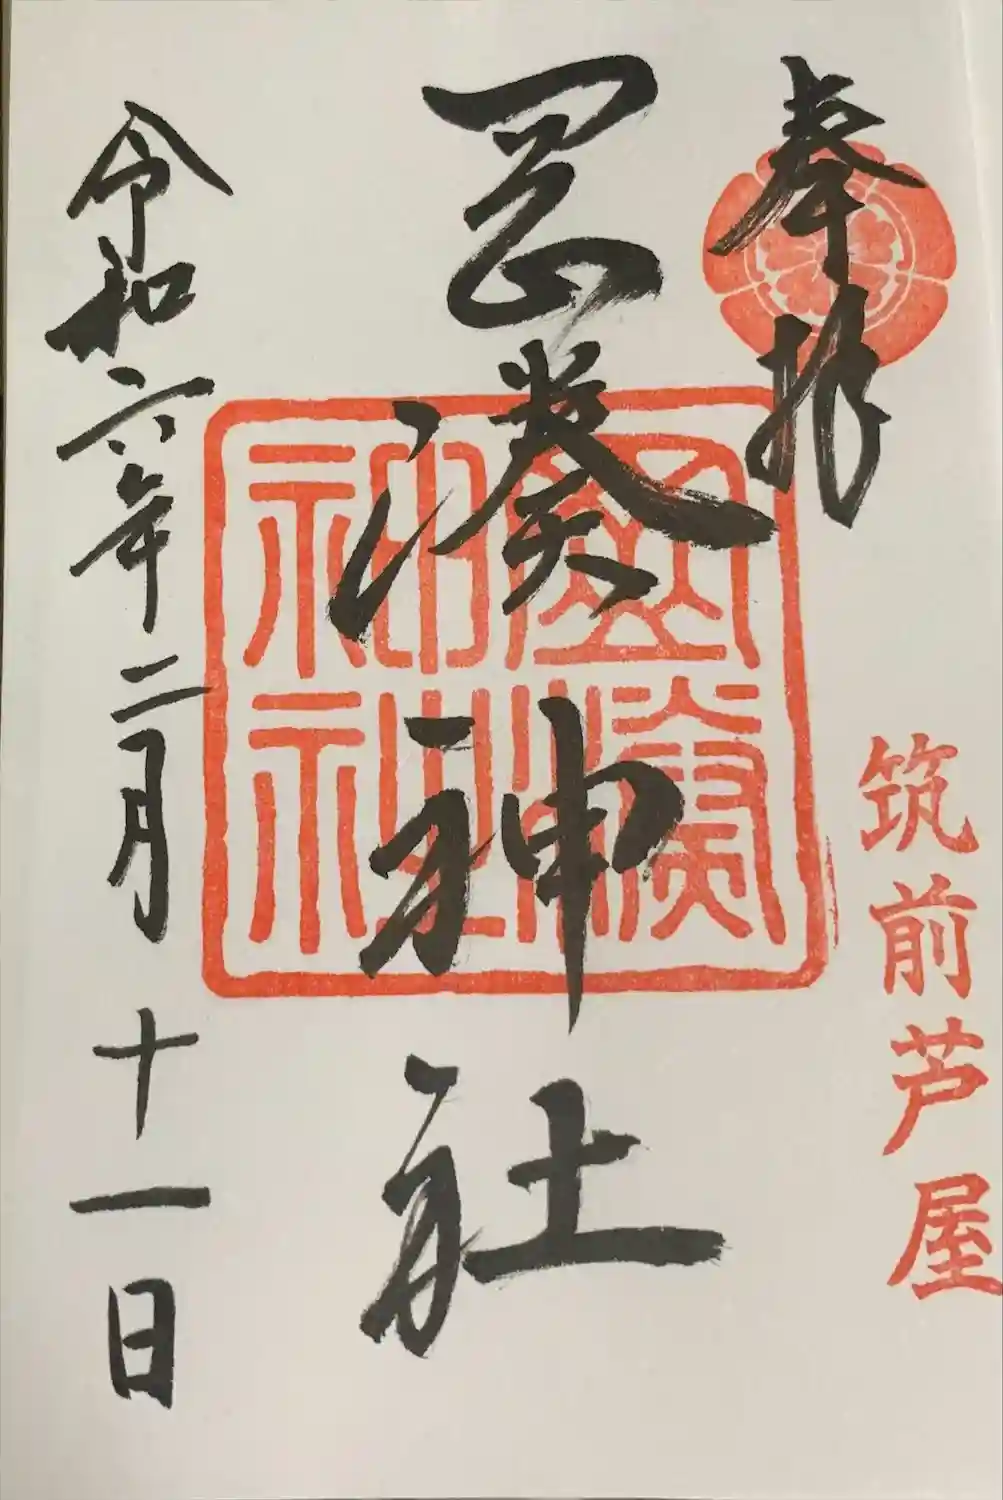 奉拝
筑前芦屋
岡湊神社
岡湊
神社
令和六年二月十一日